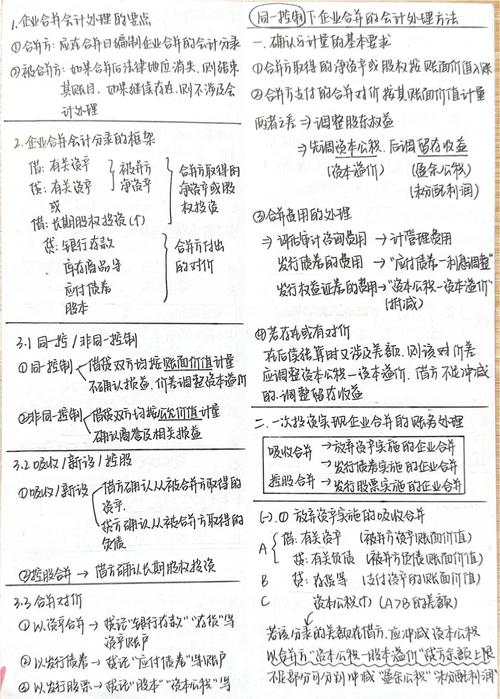 1.企业合并会计处理的要点
①合并方:应在合并日编制企业合并的会计分录
②被合并方:如果合并后法律地位消失,则结束
其账目,如果继续存在,则不涉及会
计处理
2.企业合并会计分录的框架
借:有关资产
贷:有关资产
或
借:长期股权投资(个)
贷:银行存款
库存商品等
应付债券
股本
被并方
净资产
合并方取得的
净资产或股
权投资
合并方付出
的对价
3.1 同一控/非同一控制
①同一控制
借贷双方均按账面价值计量
不确认损益,价差调整资本溢价
②非同一控制
借贷双方均按公允价值计量
确认商誉及相关损益
3.2 吸收/新设/控股
①吸收/新设
借方确认从被合并方取得的
资产.
贷方确认从被合并方取得的
负债
②控股合并 → 借方确认长期股权投资
3.3 合并对价
①以资产合并 → 贷记"银行存款""存货"等
资产账户
②以发行债券 → 贷记"应付债券"等账户
③以发行股票 → 贷记"股本""资本公积"等
同一控制下企业合并的会计处理方法
一.确认与计量的基本要求
①合并方取得的净资产或股权按账面价值入账
②合并方支付的合并对价按其账面价值计量
两者之差 ⇒ 调整股东权益
⇒ 先调资本公积,后调留存收益
(资本溢价) (盈余公积)
(未分配利润)
③合并费用的处理
⇒ 评估审计咨询费用 → 计管理费用
发行债券的费用 → "应付债券-利息调整"
发行权益证券的费用 → "资本公积-资本溢价"
(抵减)
④若存在或有对价
在后续结算时又涉及差额,则该对价差
应调整资本公积-资本溢价,借方不足冲减
的,调整留存收益
二.一次投资实现企业合并的账务处理
吸收合并 → 放弃资产实施的企业合并
→ 发行债券实施的企业合并
控股合并 → 发行股票实施的企业合并
(一).① 放弃资产实施的吸收合并
A 借:有关资产 (被并方资产账面价值)
贷:有关负债 (被并方负债账面价值)
B 贷:存货等 (支付资产的账面价值)
C 资本公积(个) (A>B的差额)
若该分录的差额在借方,应冲减资本公积
以合并方"资本公积-股本溢价"贷方余额上限
不足部分可分别冲减"盈余公积""未分配利润